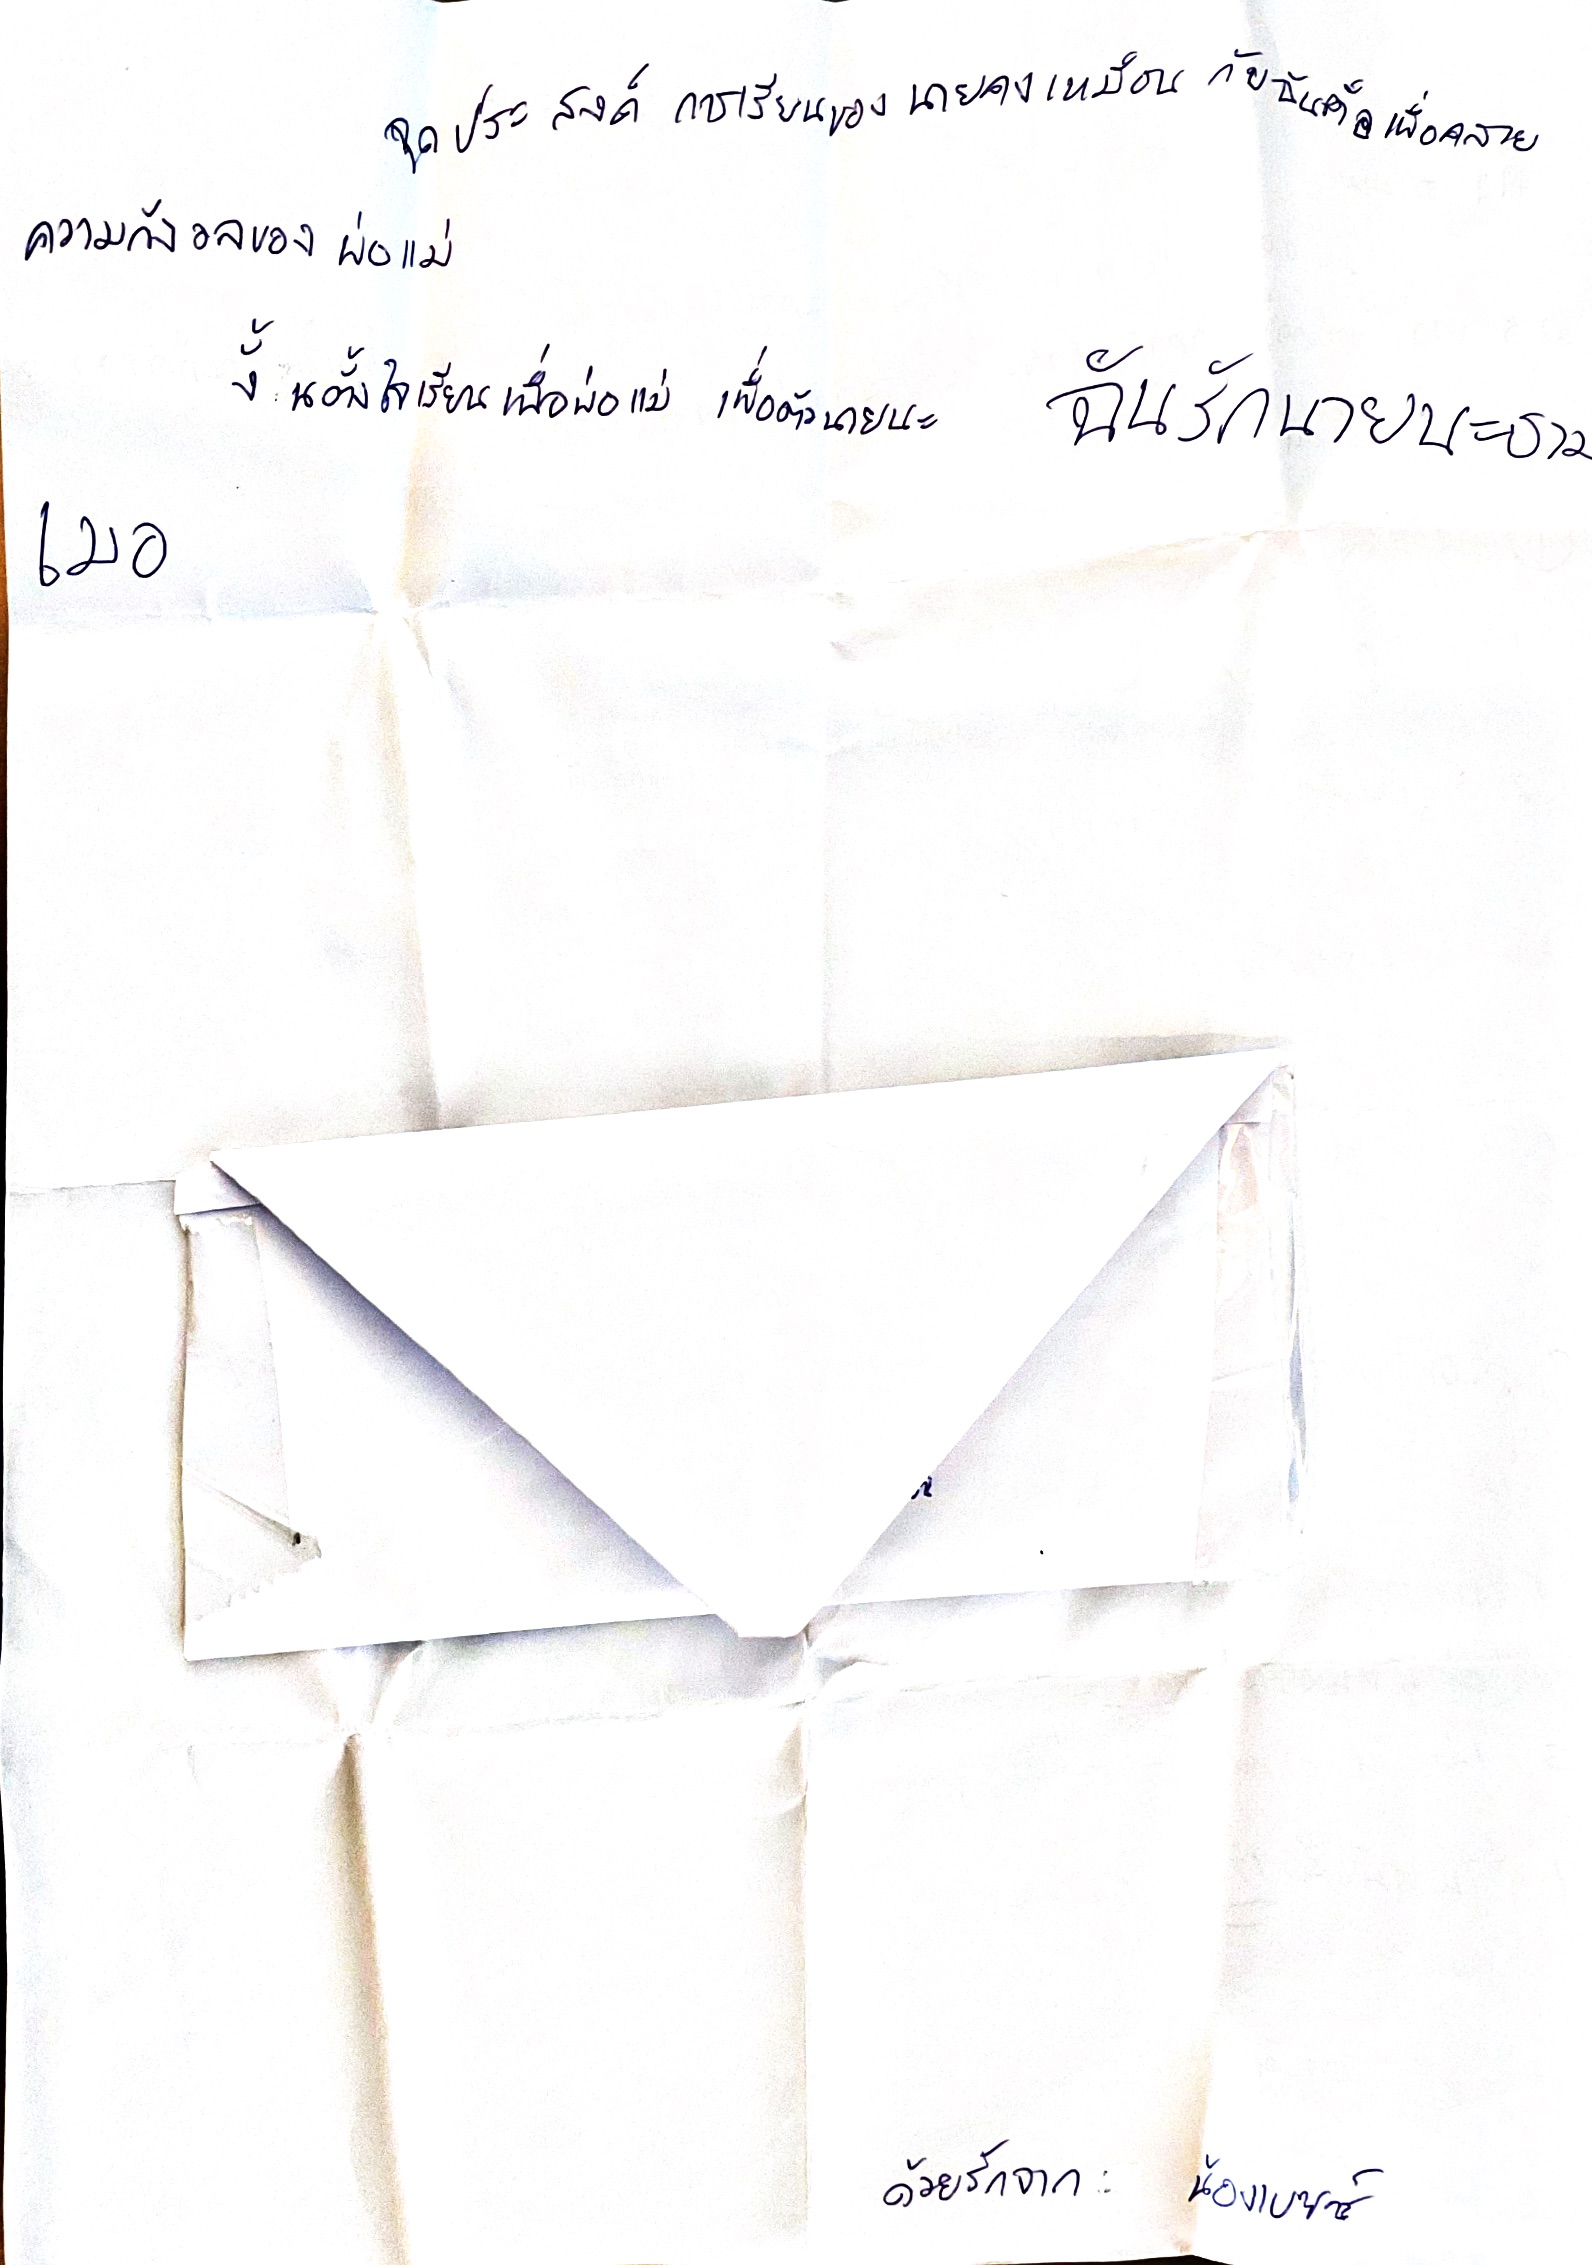 จุดประสงค์ การเรียนของ นายคงเหมือน กับฉันคือ เพื่อคลาย
ความกังวลของ พ่อแม่
งั้นตั้งใจเรียน เพื่อพ่อแม่ เพื่อตัวนายนะ ฉันรักนายนะราว
เมอ
ด้วยรักจาก : น้อง